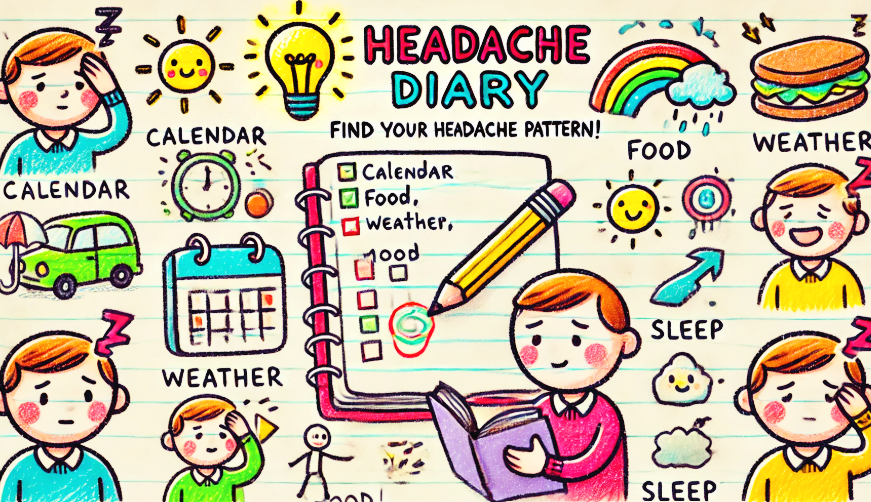 HEADACHE
DIARY
FIND YOUR HEADACHE PATTERN!
CALENDAR
FOOD
WEATHER
CALENDAR
Calendar
Food,
weather,
SLEEP
WEATHER
SLEEP